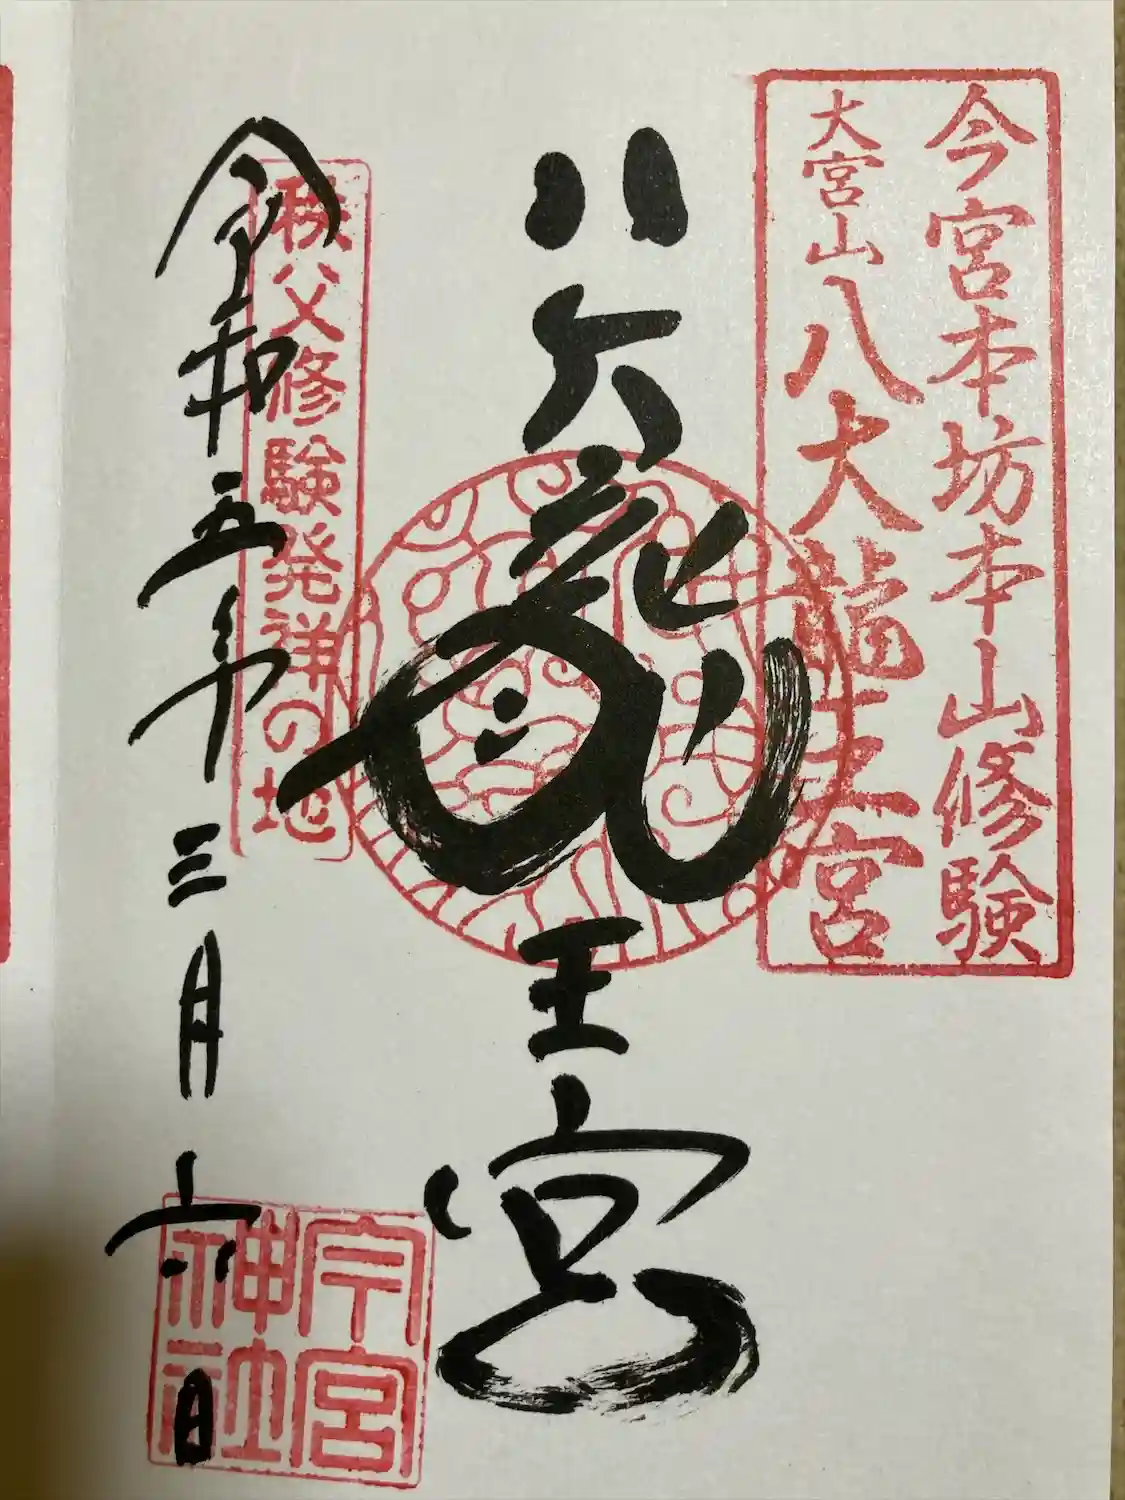 今宮本坊本山修験
大宮山八大龍王宮
八大龍王宮
秩父修験発祥の地
令和五年三月六日
今宮神社